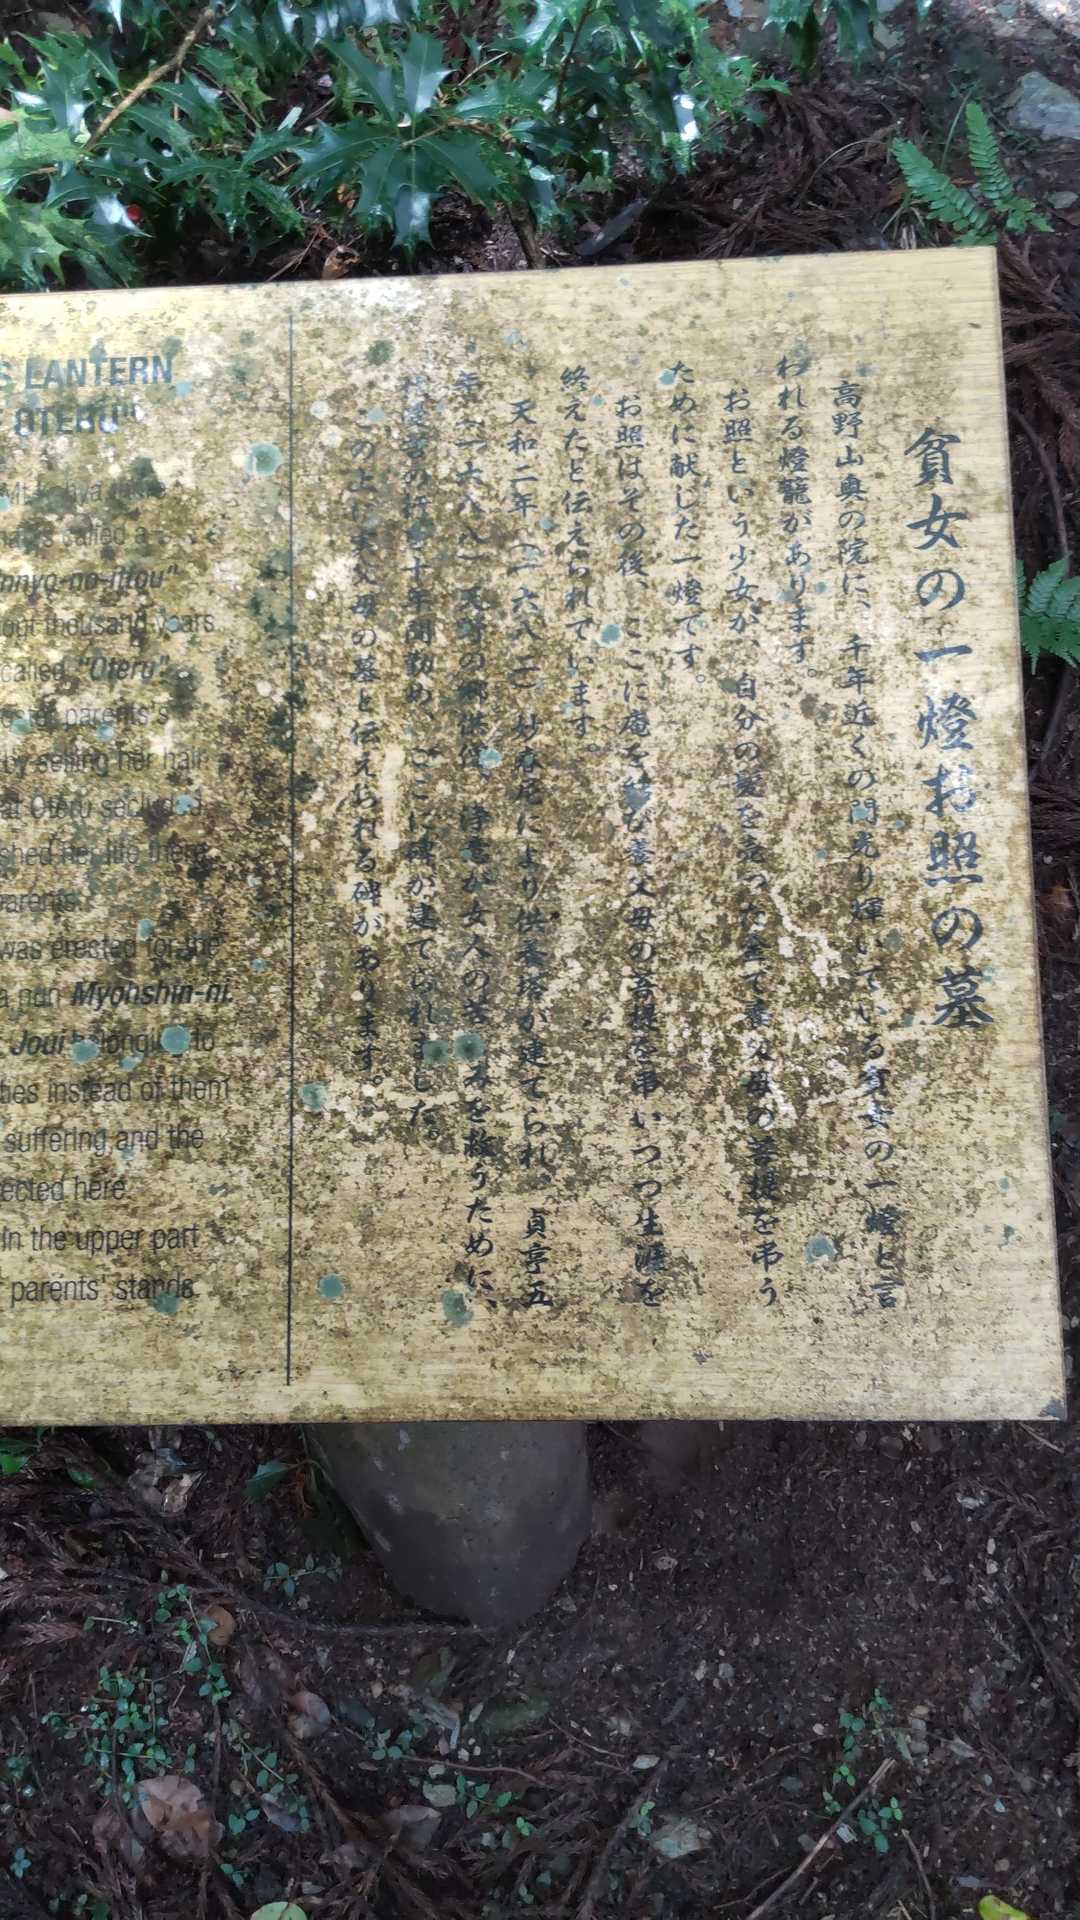 貧女の一燈お照の墓
高野山奥の院に、千年近くの間光り輝いている貧女の一燈と言
われる燈籠があります。
お照という少女が、自分の髪を売った金で養父母の菩提を弔う
ために献した一燈です。
お照はその後、ここに庵を結び養父母の菩提を弔いつつ生涯を
終えたと伝えられています。
天和二年(一六八二)妙春尼により供養塔が建てられ、貞享五
年(一六八八)天野の郷供僧、浄意が女人の苦しみを救うために、
の行を十年間勤め、ここに碑が建てられました。
この上に実父母の墓と伝えられる碑があります。
S LANTERN
OTERU"
Mt. Koya
that is called a
nnyo-no-ittou"
thousand years
called "Oteru"
parents's
by selling her hair
at Oteru secluded
shed her life there
parents.
was erected for the
a nun Myohshin-ni.
Joui belonging to
ties instead of them
suffering and the
ected here.
In the upper part
parents' stands